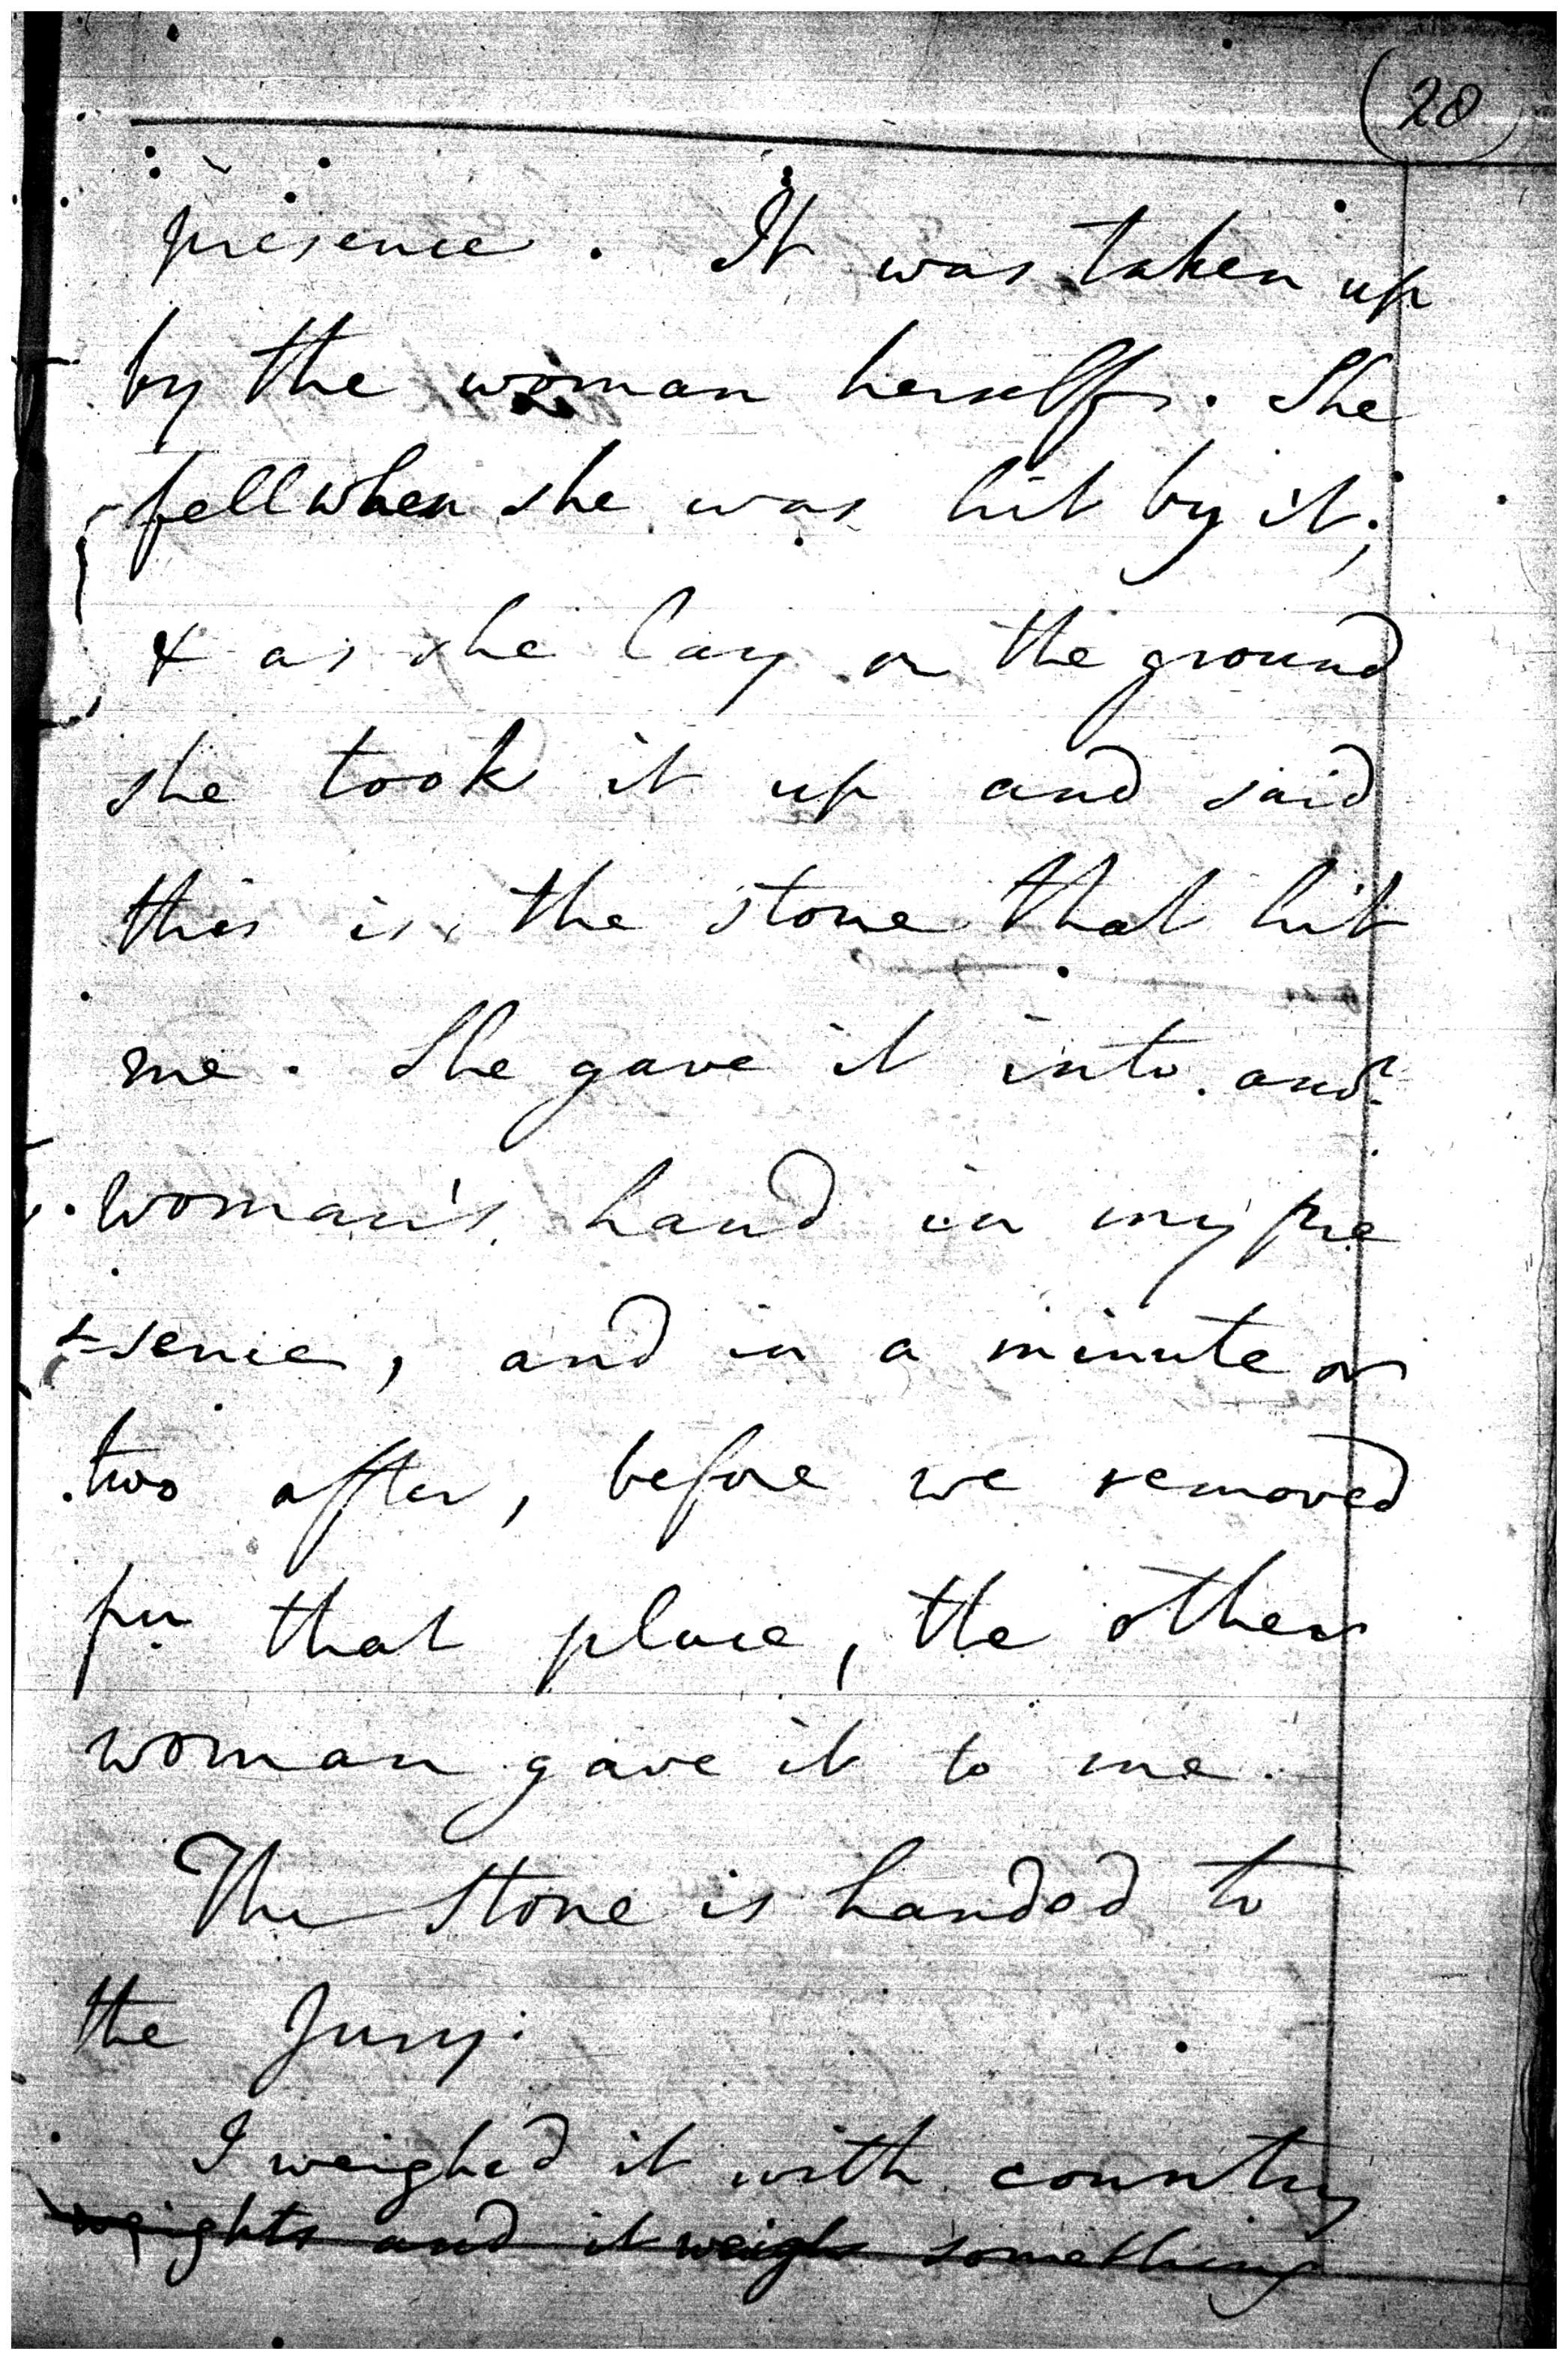 (28)
presence. It was taken up
by the woman herself. She
fell when she was hit by it;
& as she lay on the ground
she took it up and said
this is the stone that hit
me. She gave it into anor
woman's hand in my pre
-sence, and in a minute or
two after, before we removed
from that place, the other
woman gave it to me.
The Stone is handed to
the Jury.
I weighed it with country
weights and it weighs something